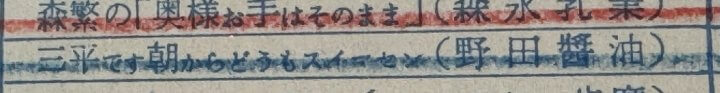 森繁の「奥様お手はそのまま」(森永乳業)
三平です朝からどうもスイーセン(野田醬油)